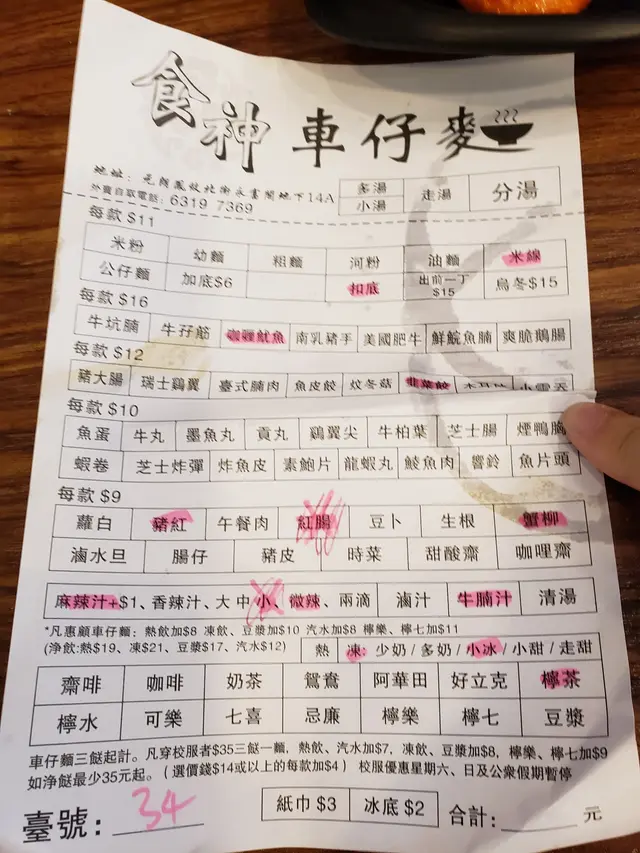 食神 車仔麵
地址：元朗鳳攸北街永富閣地下14A
外賣自取電話：6319 7369
多湯 走湯 分湯
小湯
每款 $11
米粉 幼麵 粗麵 河粉 油麵 米線
公仔麵 加底$6 扣底 出前一丁$15 烏冬$15
每款 $16
牛坑腩 牛孖筋 咖喱魷魚 南乳豬手 美國肥牛 鮮鯇魚腩 爽脆鵝腸
每款 $12
豬大腸 瑞士鷄翼 臺式腩肉 魚皮餃 炆冬菇 韮菜餃
每款 $10
魚蛋 牛丸 墨魚丸 貢丸 鷄翼尖 牛柏葉 芝士腸 煙鴨胸
蝦卷 芝士炸彈 炸魚皮 素鮑片 龍蝦丸 鯪魚肉 響鈴 魚片頭
每款 $9
蘿白 豬紅 午餐肉 紅腸 豆卜 生根 蟹柳
滷水旦 腸仔 豬皮 時菜 甜酸齋 咖哩齋
麻辣汁+$1、香辣汁、大 中 小、微辣、兩滴 滷汁 牛腩汁 清湯
*凡惠顧車仔麵：熱飲加$8 凍飲、豆漿加$10 汽水加$8 檸樂、檸七加$11
(淨飲:熱$19、凍$21、豆漿$17、汽水$12) 熱 凍: 少奶/多奶/小冰/小甜/走甜
齋啡 咖啡 奶茶 鴛鴦 阿華田 好立克 檸茶
檸水 可樂 七喜 忌廉 檸樂 檸七 豆漿
車仔麵三餸起計。凡穿校服者$35三餸一麵，熱飲、汽水加$7，凍飲、豆漿加$8，檸樂、檸七加$9
如淨餸最少35元起。（選價錢$14或以上的每款加$4） 校服優惠星期六、日及公衆假期暫停
臺號：34 紙巾 $3 冰底 $2 合計：元